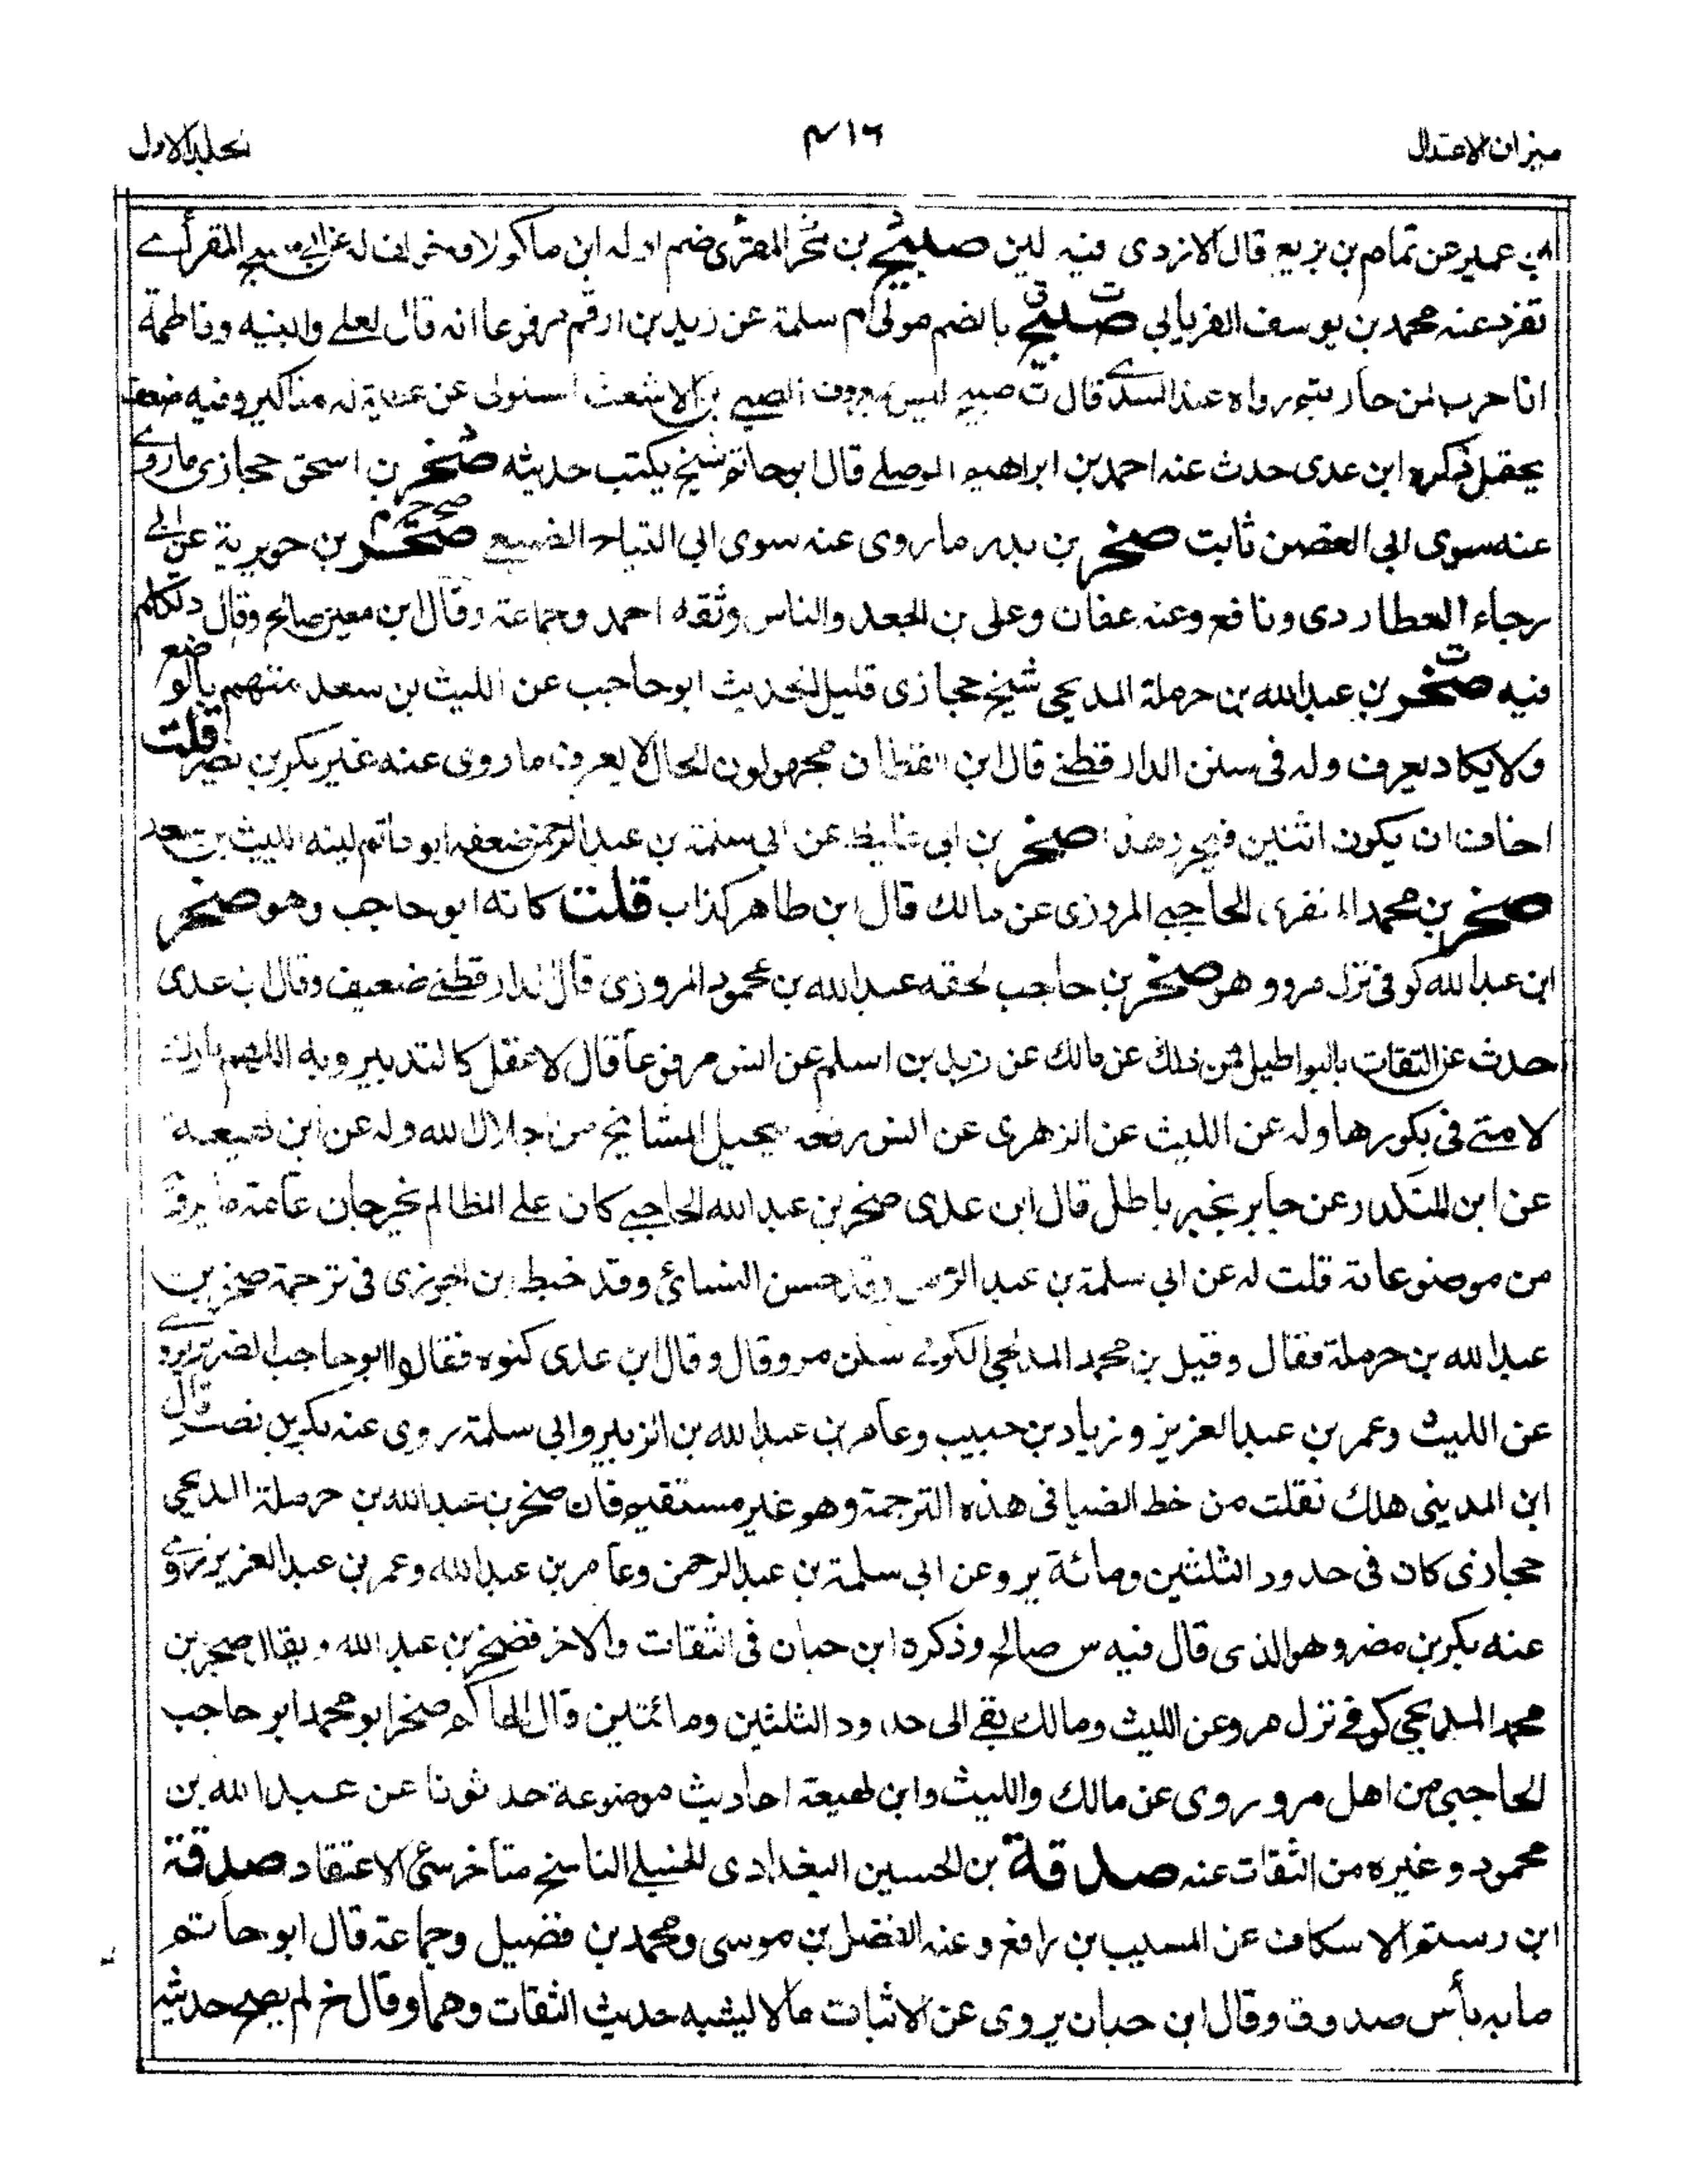 ميزان الاعتدال ٤١٦ المجلد الاول
بن عمير عن تمام بن بزيع قال الازدى فيه لين صبيح بن محرز المقرئ ضم اوله ابن ماكولا المقرأے
تفرد عنه محمد بن يوسف الفريابى ت ق صبيح بالضم مولى ام سلمة عن زيد بن ارقم مرفوعا انه قال لعلے وابنيه وفاطمة
انا حرب لمن حاربتم رواه عنه السدے قال ت صبيح ليس بمعروف الصبے بن الاشعث السلولى عن عطية له مناكير وفيه ضعف
يحتمل ذكره ابن عدى حدث عنه احمد بن ابراهيم الموصلے قال ابو حاتم شيخ يكتب حديثه صخر بن اسحق حجازى ماروے
عنه سوى ابى الغصن ثابت صخر بن بدر ما روى عنه سوى ابى التياح الضبعے صح خ م صخر بن جويرية عن ابے
رجاء العطاردى ونافع وعنه عفان وعلى بن الجعد والناس وثقه احمد وجماعة وقال ابن معين صالح وقال د تكلم
فيه ت صخر بن عبدالله بن حرملة المدلجى شيخ حجازى قليل الحديث ابو حاجب عن الليث بن سعد متهم بالوضع
ولا يكاد يعرف وله فى سنن الدارقطنے قال ابن القطان مجهول الحال لا يعرف ما روى عنه غير بكر بن نصر قلت
اخاف ان يكون اثنين فيحرر هذا صخر بن ابى غليظ عن ابى سلمة بن عبدالرحمن ضعفه ابو حاتم لينه الليث بن سعد
صخر بن محمد المنقرى الحاجبے المروزى عن مالك قال ابن طاهر كذاب قلت كانه ابو حاجب وهو صخر
ابن عبدالله كوفى نزل مرو و هو صخر بن حاجب لحقه عبدالله بن محمود المروزى قال الدارقطنے ضعيف وقال بن عدى
حدث عن الثقات بالبواطيل فمن ذلك عن مالك عن زيد بن اسلم عن انس مرفوعا قال لا عقل كالتدبير وبه اللهم بارك
لامتے فى بكورها وله عن الليث عن الزهرى عن انس رفعه يجيل المشائخ من جلال الله وله عن ابن لهيعة
عن ابن المنكدر عن جابر بخبر باطل قال ابن عدى صخر بن عبدالله الحاجبے كان علے المظالم بجرجان عامة ما يرو
من موضوعاته قلت له عن ابى سلمة بن عبدالرحمن وقد حسن النسائ وقد خبط ابن الجوزى فى ترجمة صخر بن
عبدالله بن حرملة فقال وقيل بن محمد المدلجى الكوفے سكن مرو وقال وقال ابن عدى كنوه فقالوا ابو حاجب الضرير يروے
عن الليث وعمر بن عبدالعزيز و زياد بن حبيب وعامر بن عبدالله بن الزبير وابى سلمة روى عنه بكر بن نصر قال
ابن المدينى هلك نقلت من خط الضيا فى هذه الترجمة وهو غير مستقيم فان صخر بن عبدالله بن حرملة المدلجى
حجازى كان فى حدود الثلثين ومائة يروعن ابى سلمة بن عبدالرحمن وعامر بن عبدالله وعمر بن عبدالعزيز روے
عنه بكر بن مضر وهو الذى قال فيه س صالح وذكره ابن حبان فى الثقات والاخر فضخر بن عبدالله ويقال صخر بن
محمد المدلجى كوفے نزل مرو عن الليث ومالك بقے الى حدود الثلثين ومائتين وقال الحاكم صخر ابو محمد ابو حاجب
الحاجبى من اهل مرو روى عن مالك والليث وابن لهيعة احاديث موضوعة حدثونا عن عبدالله بن
محمود وغيره من الثقات عنه صدقة بن الحسين البغدادى الحنبلے الناسخ متأخر سئ الاعتقاد صدقة
ابن رستم الاسكاف عن المسيب بن رافع وعنه الفضل بن موسى ومحمد بن فضيل وجماعة قال ابو حاتم
ما به بأس صدوق وقال ابن حبان يروى عن الاثبات مالا يشبه حديث الثقات وهما وقال خ لم يصح حديثه